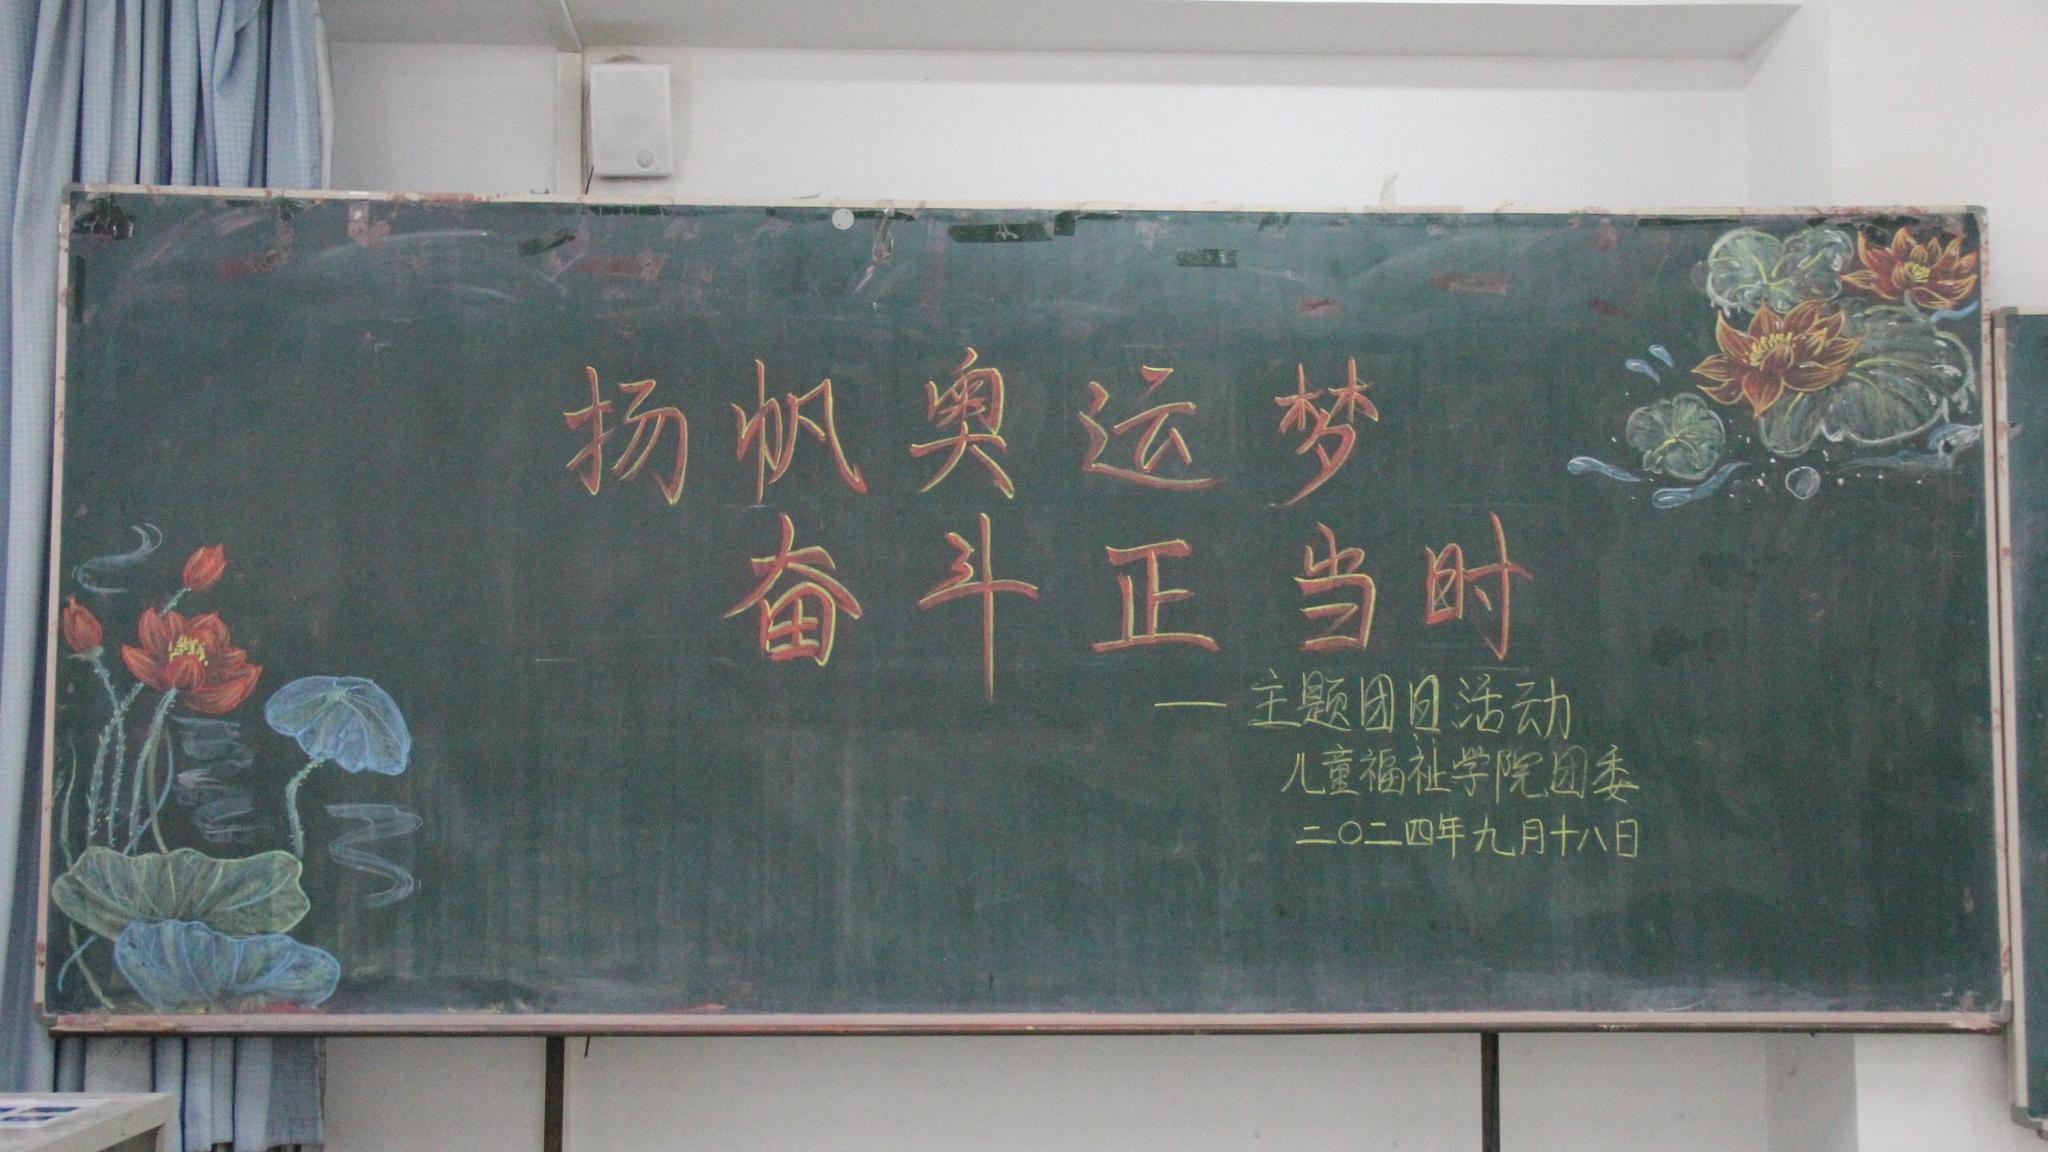 扬帆奥运梦
奋斗正当时
—主题团日活动
儿童福祉学院团委
二〇二四年九月十八日